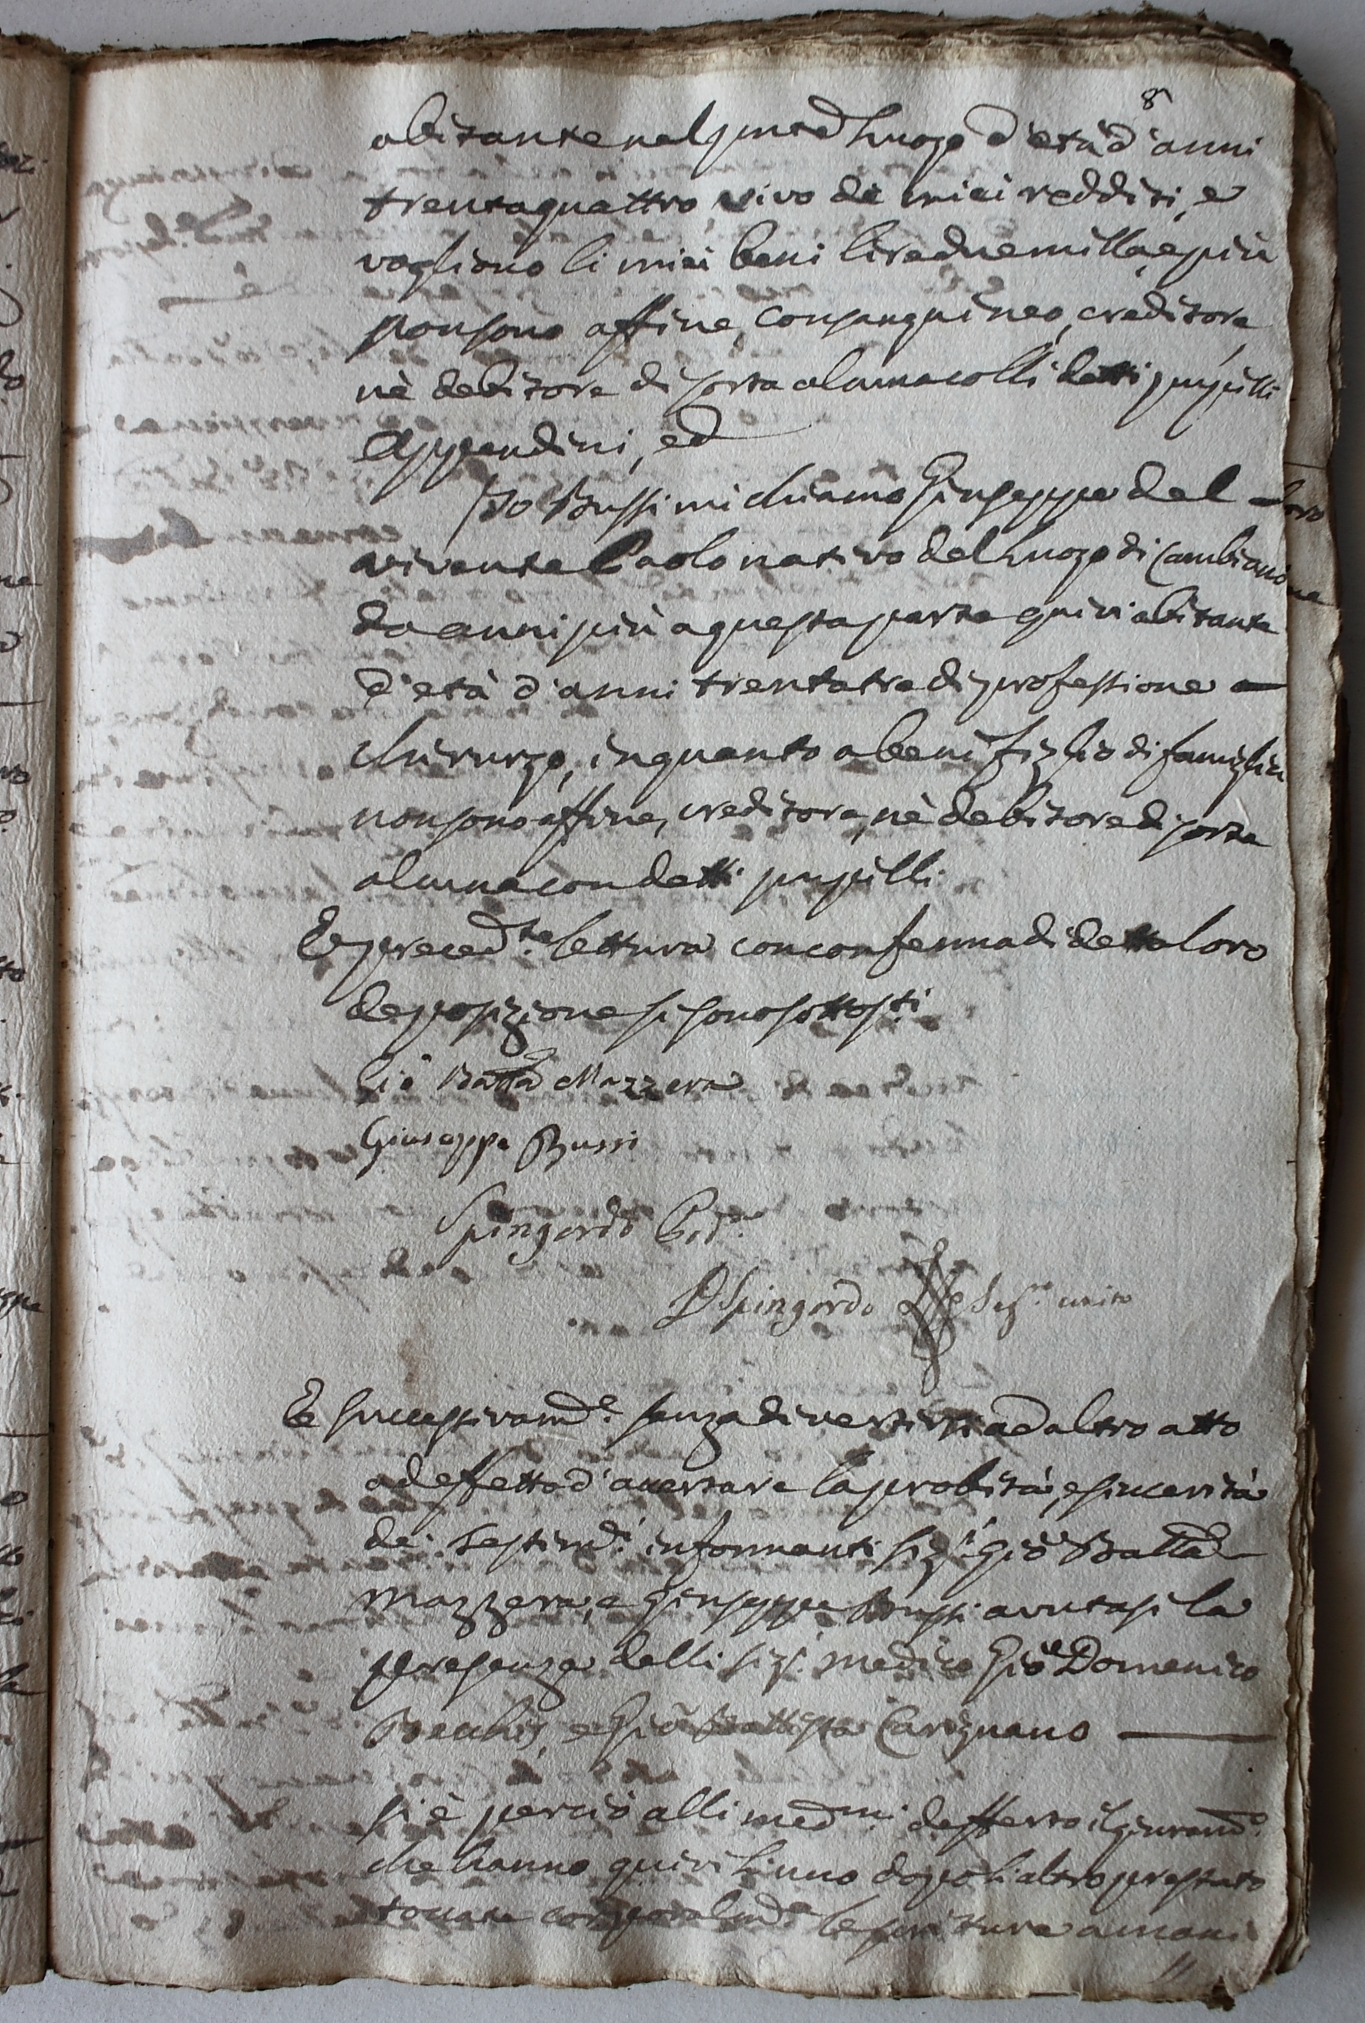 8
abitante nel pnte Luogo d'età d'anni
trentaquattro vivo de miei redditi, e
vagliono li miei beni lire duemilla, e più
non sono affine, consanguineo, creditore,
nè debitore di sorta alcuna colli detti pupilli
Appendini, ed
Io Bussi mi chiamo Giuseppe del
vivente Paolo nativo del Luogo di Cambiano
da anni più a questa parte quivi abitante
d'età d'anni trentatre di professione
chirurgo, in quanto a beni figlio di famiglia
non sono affine, creditore, nè debitore di sorta
alcuna con detti pupilli.
E preced.te lettura con conferma di dette loro
deposizione si sono sottos.ti
Gio Batta Mazzera
Giuseppe Bussi
Spingardo
Spingardo Seg.o unito
E successivam.e senza divertirsi ad altro atto
ad effetto d'accertare la probità, e sincerità
de' testim.i informanti sig.i Gio Batta
Mazzera, e Giuseppe Bussi avutasi la
presenza delli sig.i medico Gio Domenico
Becchis, e Gio Battista Carignano
si è perciò alli med.mi defferto il giuram.o
che hanno quivi l'uno dopo li altro prestato
toccate corporalm.e le scritture a mani